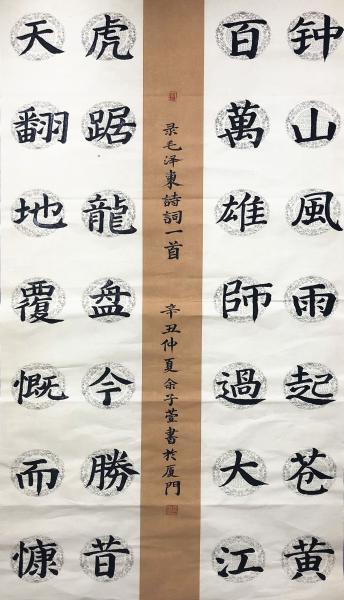 钟山風雨起苍黄
百萬雄師過大江
虎踞龍盘今勝昔
天翻地覆慨而慷
录毛泽東詩詞一首
辛丑仲夏余子萱書於厦門